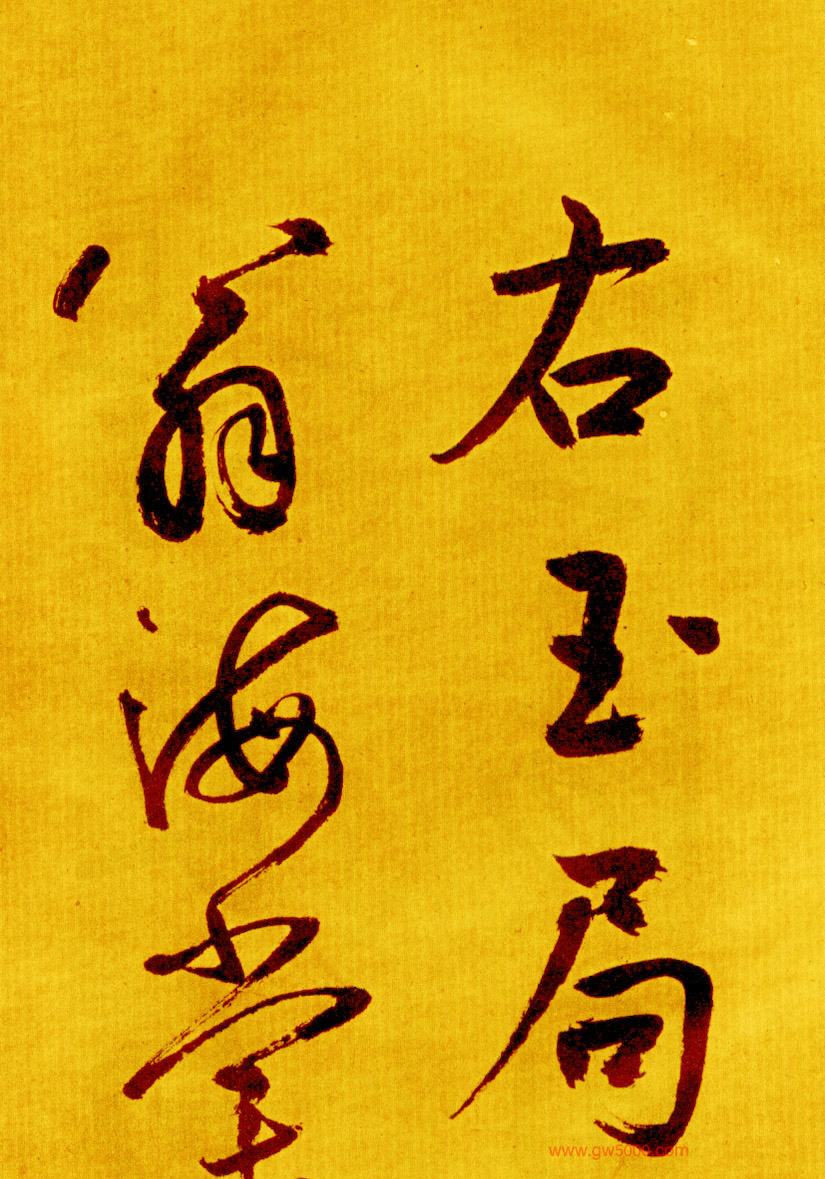 右玉局
翁海棠
www.gw5000.com